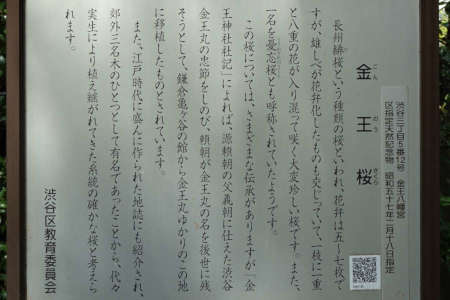 渋谷三丁目5番12号 金王八幡宮
区指定天然記念物 昭和五十七年二月十八日指定
金王桜
こんのうざくら
長州緋桜という種類の桜といわれ、花弁は五〜七枚で
すが、雄しべが花弁化したものも交じっていて、一枝に一重
と八重の花が入り混って咲く大変珍しい桜です。また、
一名を憂忘桜とも呼称されていたようです。
この桜については、さまざまな伝承がありますが「金
王神社社記」によれば、源頼朝の父義朝に仕えた渋谷
金王丸の忠節をしのび、頼朝が金王丸の名を後世に残
そうとして、鎌倉亀ヶ谷の館から金王丸ゆかりのこの地
に移植したものとされています。
また、江戸時代に盛んに作られた地誌にも紹介され、
郊外三名木のひとつとして有名であったことから、代々
実生により植え継がれてきた系統の確かな桜と考えら
れます。
渋谷区教育委員会